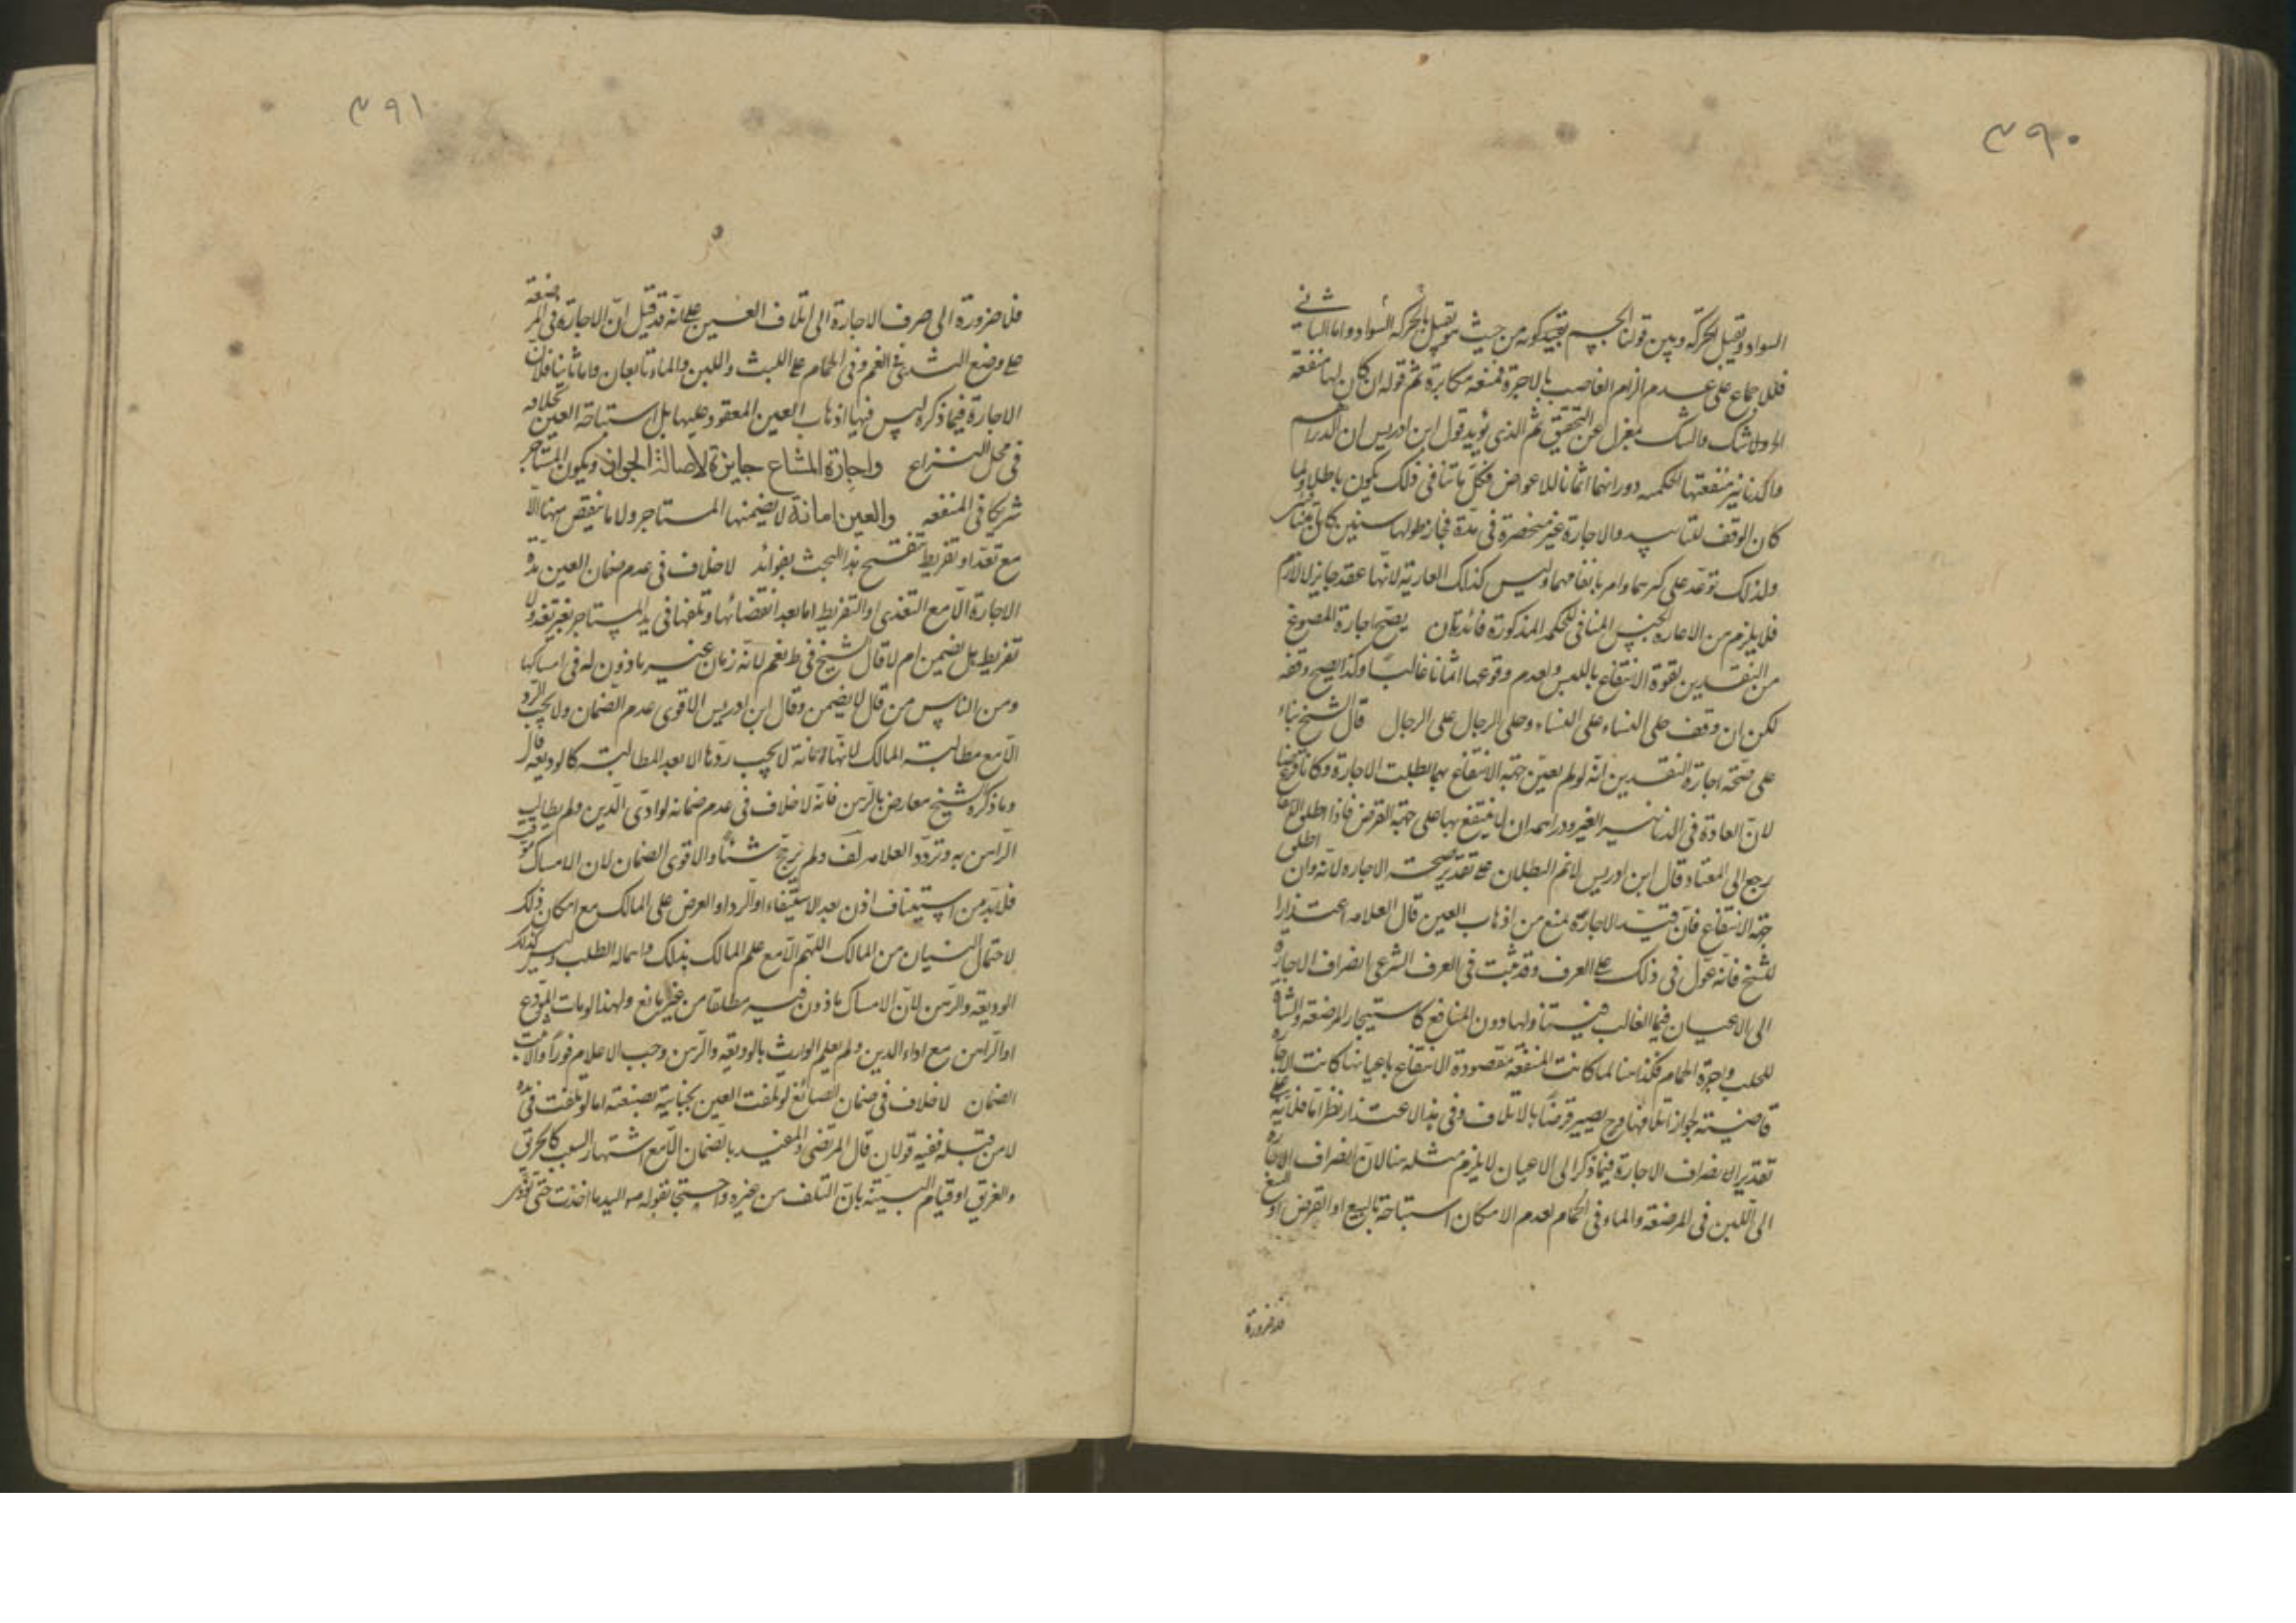 ٣٩٠
السواد ويقبل الحركة وبين قولنا الجسم بقيد كونه من حيث هو يقبل الحركة السواد واما الثاني
فللاجماع على عدم الزام الغاصب بالاجرة فمنعه مكابرة ثم قوله ان كان لها منفعة
اولا شك والشك بمعزل عن التحقيق ثم الذي يؤيد قول ابن ادريس ان الدراهم
والدنانير منفعتها الحكمية دورانهما اثمانا للاعواض فكل ما نافى ذلك يكون باطلا ولما
كان الوقف للتابيد والاجارة غير منحصرة في مدة فجاز طولها سنين كان
ولذلك توعد على كنزهما وامر بانفاقهما وليس كذلك العارية لانها عقد جايز لا لازم
فلا يلزم من الاعارة الحبس المنافي للحكمة المذكورة فائدتان يصح اجارة المصوغ
من النقدين لقوة الانتفاع باللبس ولعدم وقوعها اثمانا غالبا وكذا يصح وقفه
لكن ان وقف حلى النساء على النساء وحلى الرجال على الرجال قال الشيخ بناء
على صحة اجارة النقدين انه لو لم يعين جهة الانتفاع بهما بطلت الاجارة وكانا قرضا
لان العادة في الدنانير الغير ودراهمه ان لا ينتفع بها على جهة القرض فاذا اطلق الانتفاع
رجع الى المعتاد وقال ابن ادريس لا نم البطلان على تقدير صحة الاجارة لانه وان اطلق
جهة الانتفاع فان قيد الاجارة يمنع من اذهاب العين قال العلامه اعتذارا
للشيخ فانه عول في ذلك على العرف وقد ثبت في العرف الشرعي انصراف الاجارة
الى الاعيان فيما الغالب فيه تناولها دون المنافع كاستيجار المرضعة والشاة
للحلب واجرة الحمام فكذا هنا لما كانت المنفعة مقصودة الانتفاع باعيانها كانت الاجارة
قاضية بجواز اتلافها وح يصير قرضا بالاتلاف وفي هذا الاعتذار نظر اما فلانه على
تقدير انصراف الاجارة فيما ذكر الى الاعيان لا يلزم مثله هنا لان انصراف الاجارة
الى اللبن في المرضعة والماء في الحمام لعدم الامكان استباحة بالبيع او القرض او
فلا ضرورة
٣٩١
فلا ضرورة الى صرف الاجارة الى اتلاف العين على انه قد قيل ان الاجارة في المرضعة
على وضع الثدي في الفم وفي الحمام على اللبث واللبن والماء تابعان واما ثانيا فلان
الاجارة فيما ذكره ليس فيها اذهاب العين المعقود عليها بل استباحة العين بخلافه
في محل النزاع واجارة المشاع جايزة لاصالة الجواز ويكون المستاجر
شريكا في المنفعه والعين امانة لا يضمنها المستاجر ولا ما ينقص منها الا
مع تعد او تفريط تنقيح هذا البحث بفوائد لا خلاف في عدم ضمان العين مدة
الاجارة الا مع التعدي او التفريط اما بعد انقضائها وتلفها في يد المستاجر بغير تعد ولا
تفريط هل يضمن ام لا قال الشيخ في ط نعم لانه زمان غير ماذون له في امساكها
ومن الناس من قال لا يضمن وقال ابن ادريس الاقوى عدم الضمان ولا يجب الرد
الا مع مطالبة المالك لانها امانة لا يجب ردها الا بعد المطالبة كالوديعه قال
وما ذكره الشيخ معارض بالرهن فانه لا خلاف في عدم ضمانه لو ادى الدين ولم يطالب
الراهن به وتردد العلامه لف ولم يرجح شيئا والاقوى الضمان لان الامساك
فلا بد من استيناف اذن بعد الاستيفاء او الرد او العرض على المالك مع امكان ذلك
لاحتمال النسيان من المالك اللهم الا مع علم المالك بذلك واهماله الطلب وليس كذلك
الوديعه والرهن لان الامساك ماذون فيه مطلقا من غير مانع ولهذا لو مات المودع
او الراهن مع اداء الدين ولم يعلم الوارث بالوديعه والرهن وجب الاعلام فورا والا ثبت
الضمان لا خلاف في ضمان الصائغ لو تلفت العين بجنايته بصنعته اما لو تلفت في يده
لا من قبله ففيه قولان قال المرتضى والمفيد بالضمان الا مع اشتهار السبب كالحريق
والغريق او قيام البينة بان التلف من غيره واحتجا بقوله ص اليد ما اخذت حتى تؤدى